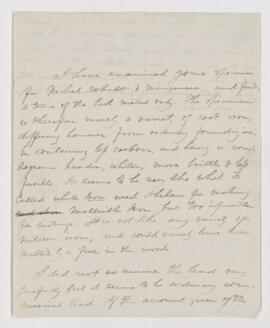 I have examined your specimen
for Nickel Cobalt & manganese, and find
a trace of the last metal only. The specimen
is therefore merely a variety of cast iron,
differing however from ordinary foundry iron
in containing less carbon, and being in con-
sequence harder, whiter, more brittle & less
fusible. It seems to be very like what is
called white iron used I believe for making
malleable iron but too infusible
for castings. It is not like any variety of
meteoric iron, and could scarcely have been
melted by a fire in the woods.
I did not examine the lead very
carefully but it seems to be ordinary com-
mercial lead. If the account given of the